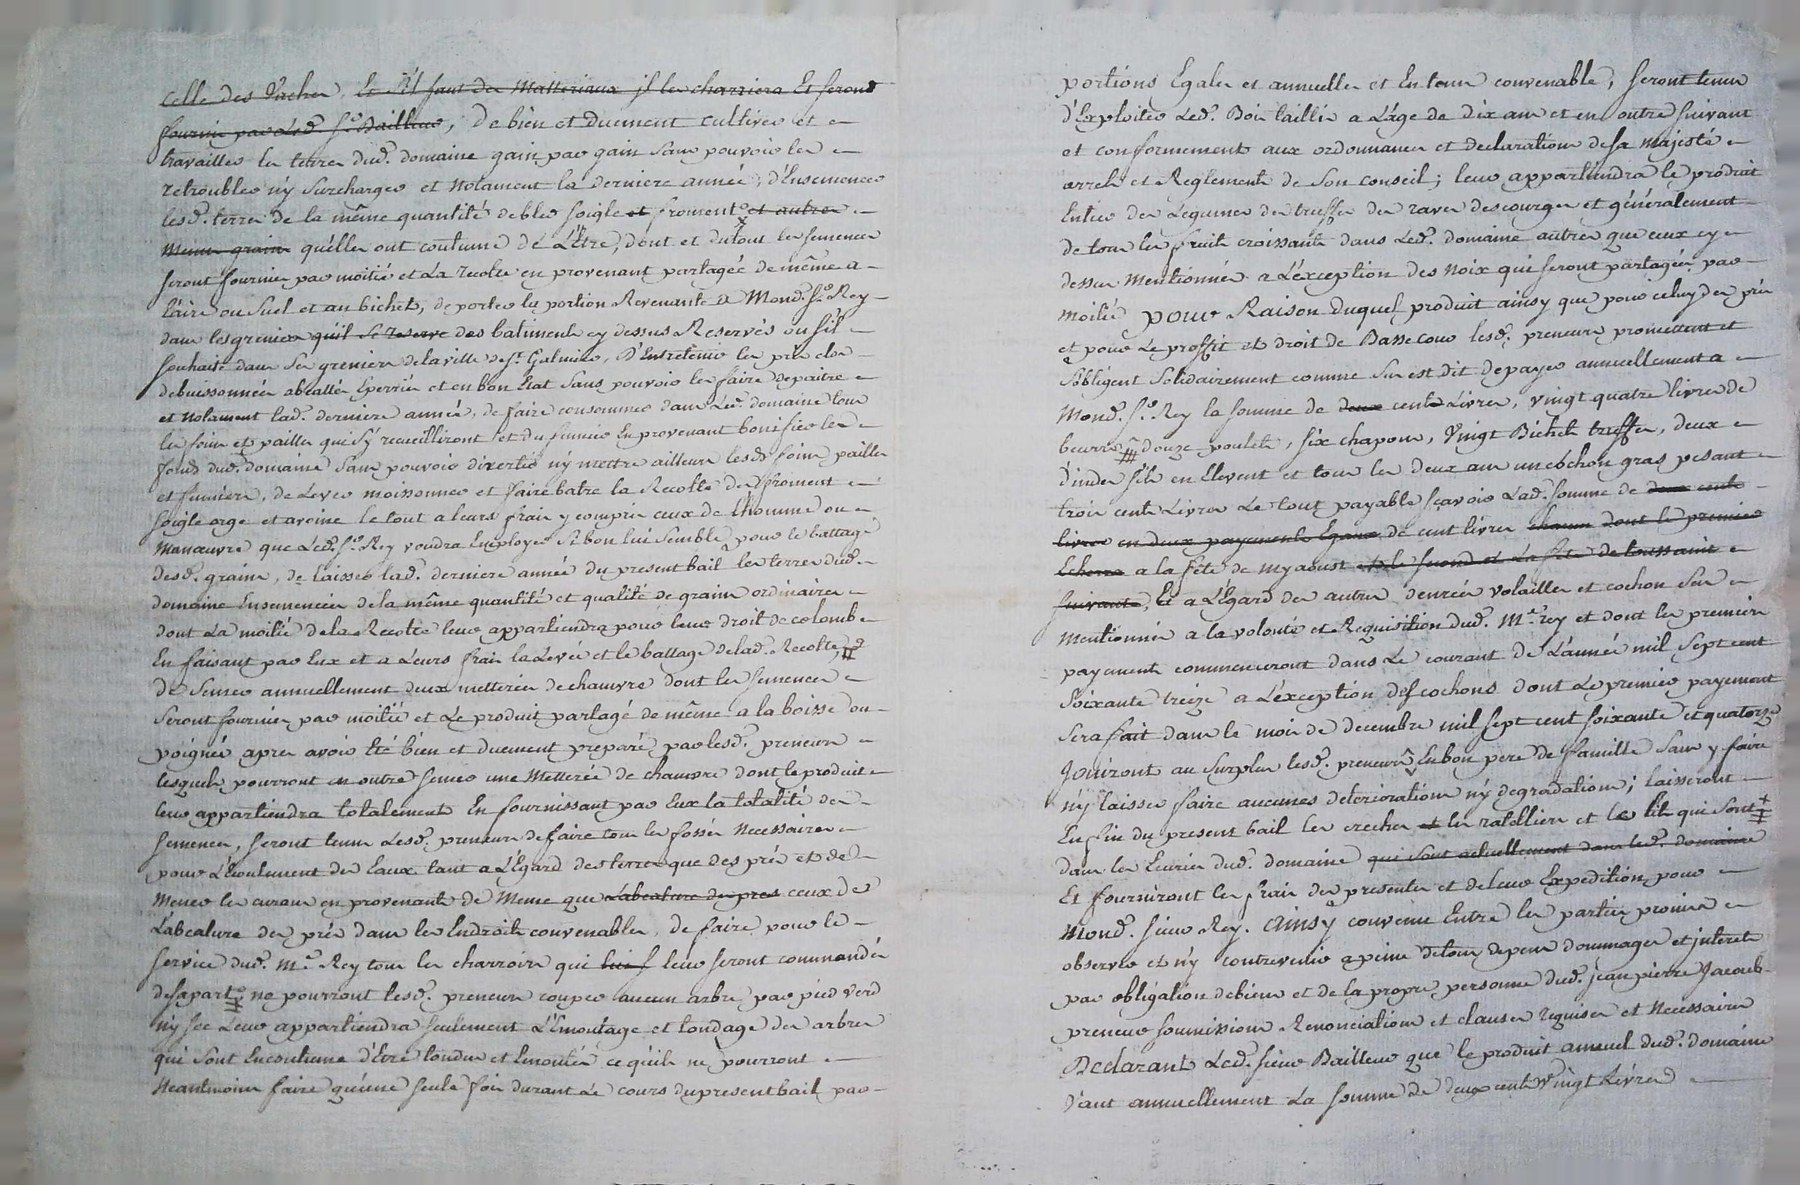 celle des Vaches, et s'il faut des Matteriaux il les charriera Et seront
fournis par Led. Sr. Bailleur, de bien et duement cultiver et
travailler les terres dud. domaine gain par gain sans pouvoir les
retroubler n'y surcharger et notament la derniere année, d'Ensemencer
lesd. terres de la même quantité de bled soigle et froment et autres
menus grains qu'elles ont coutume de L'Etre, dont et du tout les semences
seront fournies par moitié et La recolte en provenant partagée de même a
l'aire ou suel et au bichet, de porter la portion Revenante a Mond. Sr. Rey
dans les greniers qu'il se reserve des batiments cy dessus Reservés ou s'il
souhaite dans ses greniers de la ville de St. Galmier, D'Entretenir les prés clos
debuissonnés abcallés Eperriés et en bon Etat sans pouvoir les faire depaitre
et Notament lad. derniere année, de faire consommer dans Led. domaine tous
les foins et pailles qui s'y recueilliront et du fumier En provenant bonifier les
fonds dud. domaine sans pouvoir divertir n'y mettre ailleurs lesds. foins pailles
et fumiers, de Lever moissonner et faire batre la Recolte des froment
soigle orge et avoine le tout a leurs frais y compris ceux de l'homme ou
Manoeuvre que Led. Sr. Rey voudra Employer si bon lui semble pour le battage
desd. grains, de laisser lad. derniere année du present bail les terres dud.
domaine Ensemencées de la même quantité et qualité de grains ordinaires
dont La moitié de la Recolte leur appartiendra pour leur droit de colomb
En faisant par Eux et a Leurs frais la Levée et le battage de lad. Recolte,
de semer annuellement deux metterées de chanvre dont les semences
seront fournies par moitié et Le produit partagé de même a la boisse ou
poignée apres avoir Eté bien et duement preparé par lesd. preneurs
lesquels pourront en outre semer une Metterée de chanvre dont le produit
leur appartiendra totalement En fournissant par Eux la totalité des
semences, seront tenus Lesd. preneurs de faire tous les fossés Necessaires
pour L'écoulement des Eaux tant a L'égard des terres que des prés et de
Mener les curaux en provenants de Meme que L'abcalure des prés ceux de
L'abcalure des prés dans les Endroits convenables, de faire pour le
service dud. Mr. Rey tous les charroirs qui lui s leur seront commandés
de sa part, ne pourront lesd. preneurs couper aucun arbre par pied verd
n'y sec Leur appartiendra seulement L'Emontage et tondage des arbres
qui sont En coutume d'Etre tondus et Emontés ce qu'ils ne pourront
Neantmoins faire qu'une seule fois durant Le cours du present bail par
portions Egales et annuelles et En tems convenable, seront tenus
d'Exploiter Led. Bois taillis a L'âge de dix ans et en outre suivant
et conformement aux ordonnances et declarations de sa Majesté
arrets et Reglements de son conseil; leur appartiendra le produit
Entier des Legumes des treuffes des raves des courges et généralement
de tous les fruits croissants dans Led. domaine autres que ceux cy
dessus Mentionnés a L'exception des Noix qui seront partagées par
moitié pour Raison duquel produit ainsy que pour celuy des prés
et pour Le proffit et droit de Bassecour lesd. preneurs promettent et
s'obligent solidairement comme sus est dit de payer annuellement a
Mond. Sr. Rey la somme de deux cents Livres, vingt quatre livres de
beurre douze poulets, six chapons, Vingt Bichets treuffes, deux
d'indes s'ils en Elevent et tous les deux ans un cochon gras pesant
trois cents Livres Le tout payable sçavoir Lad. somme de deux cents
livres en deux payements Egaux de cent livres chacun dont le premier
Echerra a la fête de my aoust et le second a La fête de toussaint
suivante, et a L'égard des autres denrées volailles et cochon sus
mentionnés a la volonté et Requisition dud. Mr. rey et dont les premiers
payements commenceront dans Le courant de L'année mil sept cent
soixante treize a L'exception des cochons dont Le premier payement
sera fait dans le mois de decembre mil sept cent soixante et quatorze
Jouiront au surplus lesd. preneurs En bon pere de famille sans y faire
n'y laisser faire aucunes deteriorations n'y degradations; laisseront
En fin du present bail les creches et les ratelliers et les lits qui sont
dans les Ecuries dud. domaine qui sont actuellement dans led. domaine
Et fourniront les frais des presentes et de leur Expedition pour
Mond. sieur Rey. Ainsy convenu Entre les parties promis
observer et n'y contrevenir a peine de tous depens dommages et interets
par obligation de biens et de la propre personne dud. jean pierre Jacoub
preneur soumissions Renonciations et clauses requises et Necessaires
Declarant Led. sieur Bailleur que le produit annuel dud. domaine
vaut annuellement La somme de deux cents vingt Livres